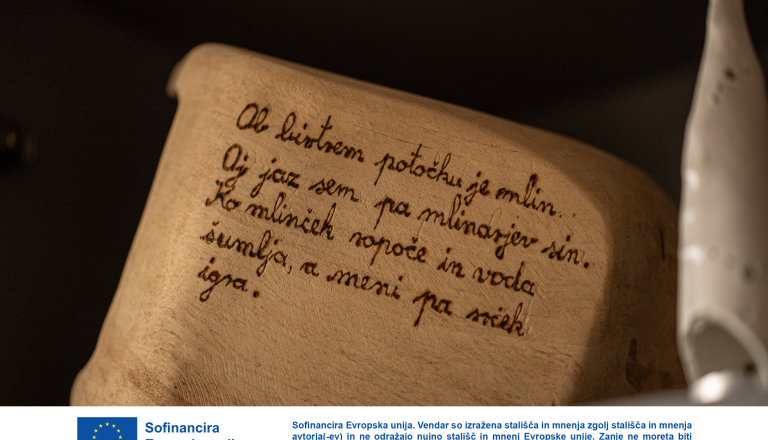 Ob bistrem potočku je mlin..
Oj jaz sem pa mlinarjev sin.
Ko mlinček ropoče in voda
šumlja, a meni pa srček
igra.
Sofinancira
Sofinancira Evropska unija. Vendar so izražena stališča in mnenja zgolj stališča in mnenja
avtorja(-ev) in ne odražajo nujno stališč in mnenj Evropske unije. Zanje ne moreta biti